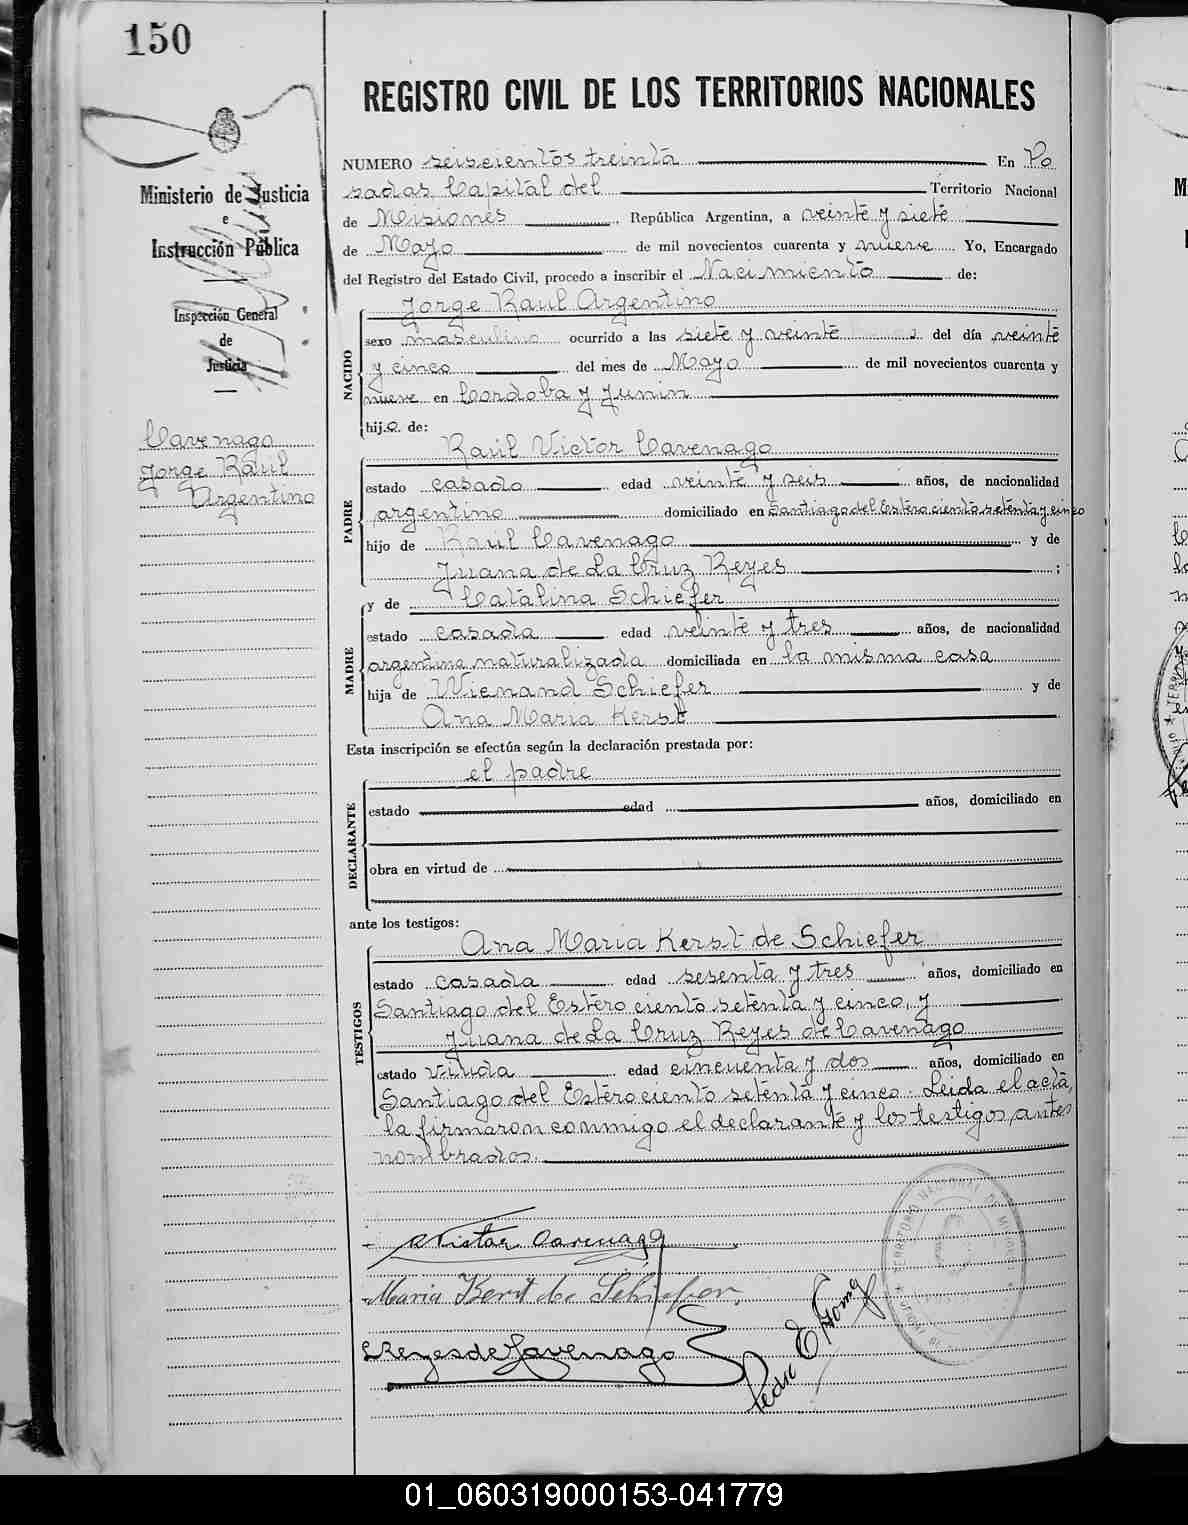 150
REGISTRO CIVIL DE LOS TERRITORIOS NACIONALES
Ministerio de Justicia
e
Instrucción Pública
Inspección General
de
Justicia
Cavenago
Jorge Raúl
Argentino
NUMERO seiscientos treinta En Po
sadas, Capital del Territorio Nacional
de Misiones República Argentina, a veinte y siete
de Mayo de mil novecientos cuarenta y nueve Yo, Encargado
del Registro del Estado Civil, procedo a inscribir el Nacimiento de:
Jorge Raul Argentino
NACIDO
sexo masculino ocurrido a las siete y veinte del día veinte
y cinco del mes de Mayo de mil novecientos cuarenta y
nueve en Cordoba y Junin
hijo de:
Raúl Victor Cavenago
PADRE
estado casado edad veinte y seis años, de nacionalidad
argentino domiciliado en Santiago del Estero ciento setenta y cinco
hijo de Raul Cavenago y de
Juana de La Cruz Reyes ;
y de Catalina Schiefer
MADRE
estado casada edad veinte y tres años, de nacionalidad
argentina naturalizada domiciliada en la misma casa
hija de Wienand Schiefer y de
Ana Maria Kerst
Esta inscripción se efectúa según la declaración prestada por:
el padre
DECLARANTE
estado edad años, domiciliado en
obra en virtud de
ante los testigos:
Ana Maria Kerst de Schiefer
TESTIGOS
estado casada edad sesenta y tres años, domiciliado en
Santiago del Estero ciento setenta y cinco, y
Juana de La Cruz Reyes de Cavenago
estado viuda edad cincuenta y dos años, domiciliado en
Santiago del Estero ciento setenta y cinco. Leida el acta,
la firmaron conmigo el declarante y los testigos, antes
nombrados.
Victor Cavenago
Maria Kerst de Schiefer.
Reyes de Cavenago
Pedro E
TERRITORIO NACIONAL DE MISIONES
01_060319000153-041779